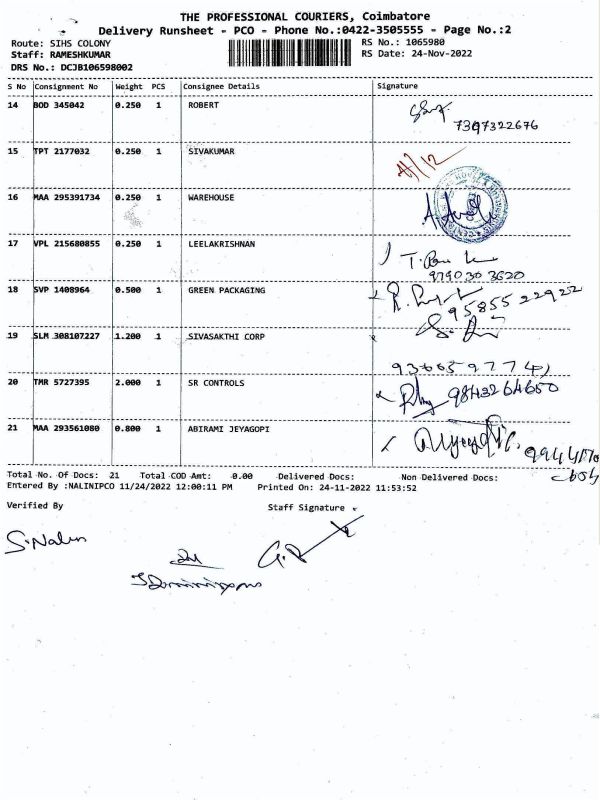 THE PROFESSIONAL COURIERS, Coimbatore
Delivery Runsheet - PCO - Phone No.:0422-3505555 - Page No.:2
Route: SIHS COLONY
RS No.: 1065980
Staff: RAMESHKUMAR
RS Date: 24-Nov-2022
DRS No.: DCJB106598002
S No Consignment No Weight PCS Consignee Details Signature
14 BOD 345042 0.250 1 ROBERT
7397322676
15 TPT 2177032 0.250 1 SIVAKUMAR
16 MAA 295391734 0.250 1 WAREHOUSE
17 VPL 215680855 0.250 1 LEELAKRISHNAN
9790303620
18 SVP 1408964 0.500 1 GREEN PACKAGING
9585522922
19 SLM 308107227 1.200 1 SIVASAKTHI CORP
20 TMR 5727395 2.000 1 SR CONTROLS
9843264650
21 MAA 293561080 0.800 1 ABIRAMI JEYAGOPI
Total No. Of Docs: 21 Total COD Amt: 0.00 Delivered Docs: Non Delivered Docs:
Entered By :NALINIPCO 11/24/2022 12:00:11 PM Printed On: 24-11-2022 11:53:52
Verified By Staff Signature
S.Nalini